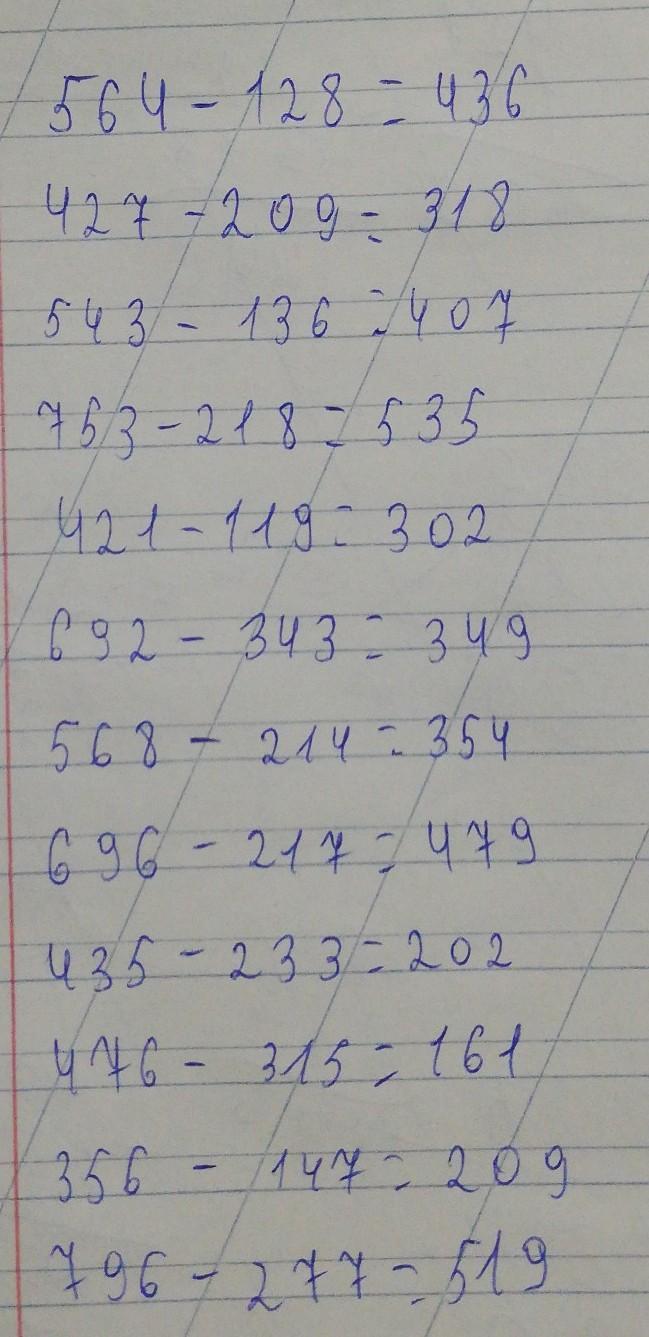 564 - 128 = 436
427 - 209 = 318
543 - 136 = 407
753 - 218 = 535
421 - 119 = 302
692 - 343 = 349
568 - 214 = 354
696 - 217 = 479
435 - 233 = 202
476 - 315 = 161
356 - 147 = 209
796 - 277 = 519